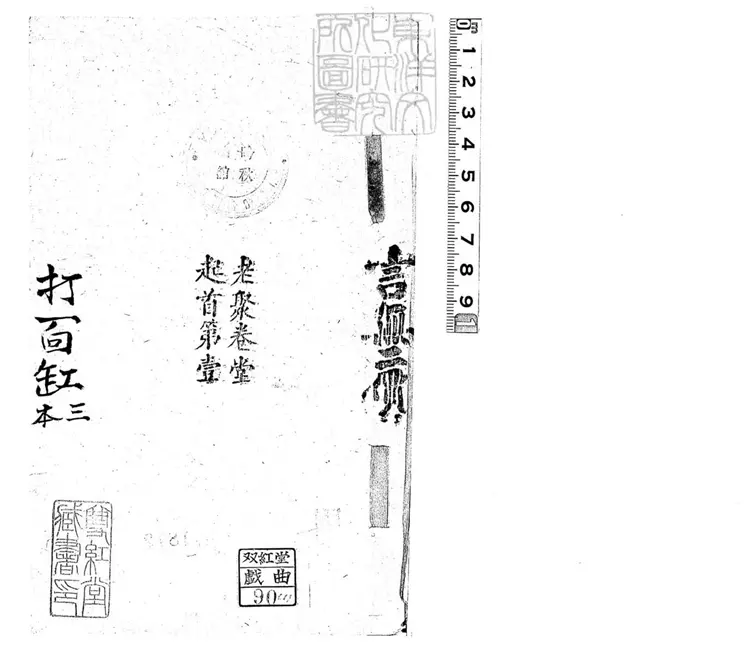 東洋文
化研究
所圖書
老聚卷堂
起首第壹
打面缸
三本
雙紅堂
藏書印
双紅堂
戲曲
90
0 1 2 3 4 5 6 7 8 9